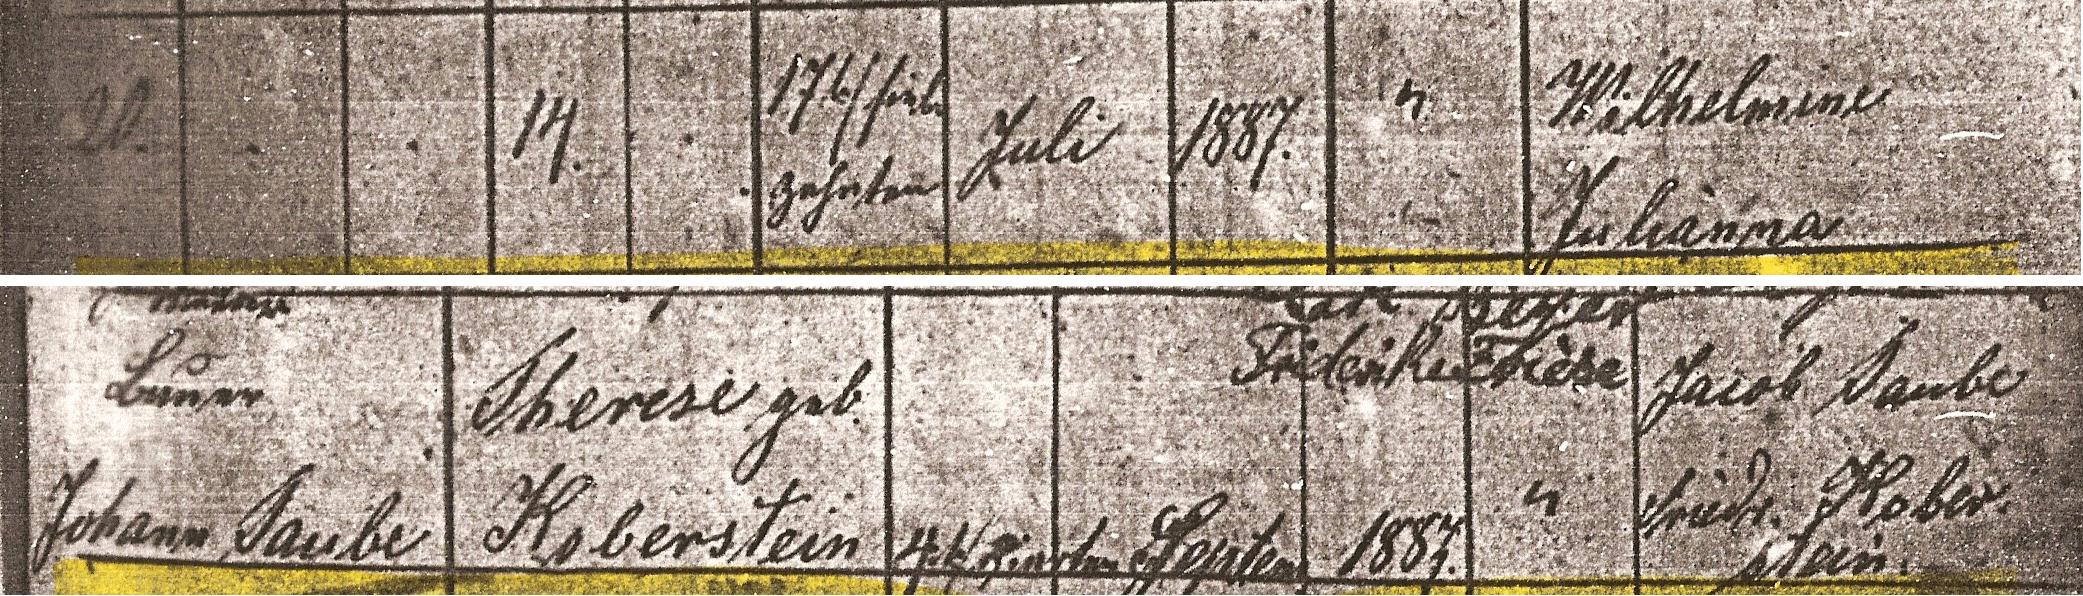 21.
14.
17. b/ sieb
zehnten
Juli
1887.
"
Wilhelmine
Julianna
Bauer
Johann Taube
Therese geb.
Koberstein
4. t/ vierten
Septem
1887.
Friderike Thiese
"
Jacob Taube
Friedr. Kober-
stein.